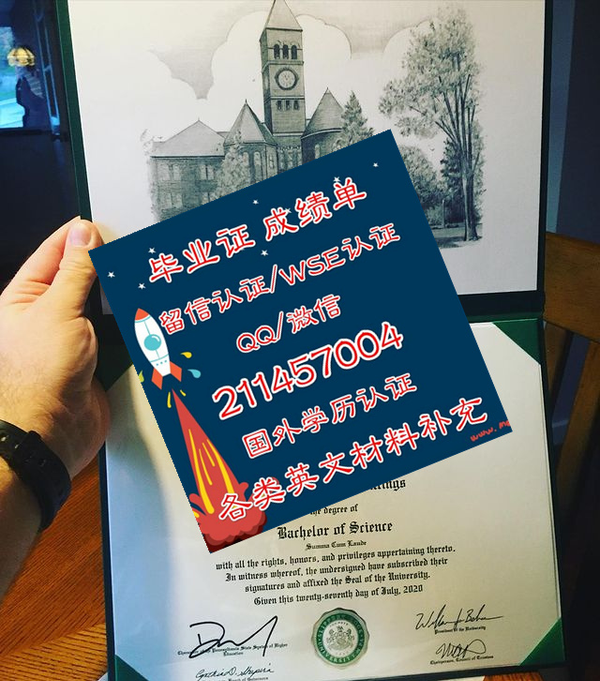 毕业证 成绩单
留信认证/WSE认证
QQ/微信
211457004
国外学历认证
各类英文材料补充
the degree of
Bachelor of Science
Summa Cum Laude
with all the rights, honors, and privileges appertaining thereto.
In witness whereof, the undersigned have subscribed their
signatures and affixed the Seal of the University.
Given this twenty-seventh day of July, 2020
Pennsylvania State System of Higher
Education
President of the University
Chairperson, Council of Trustees